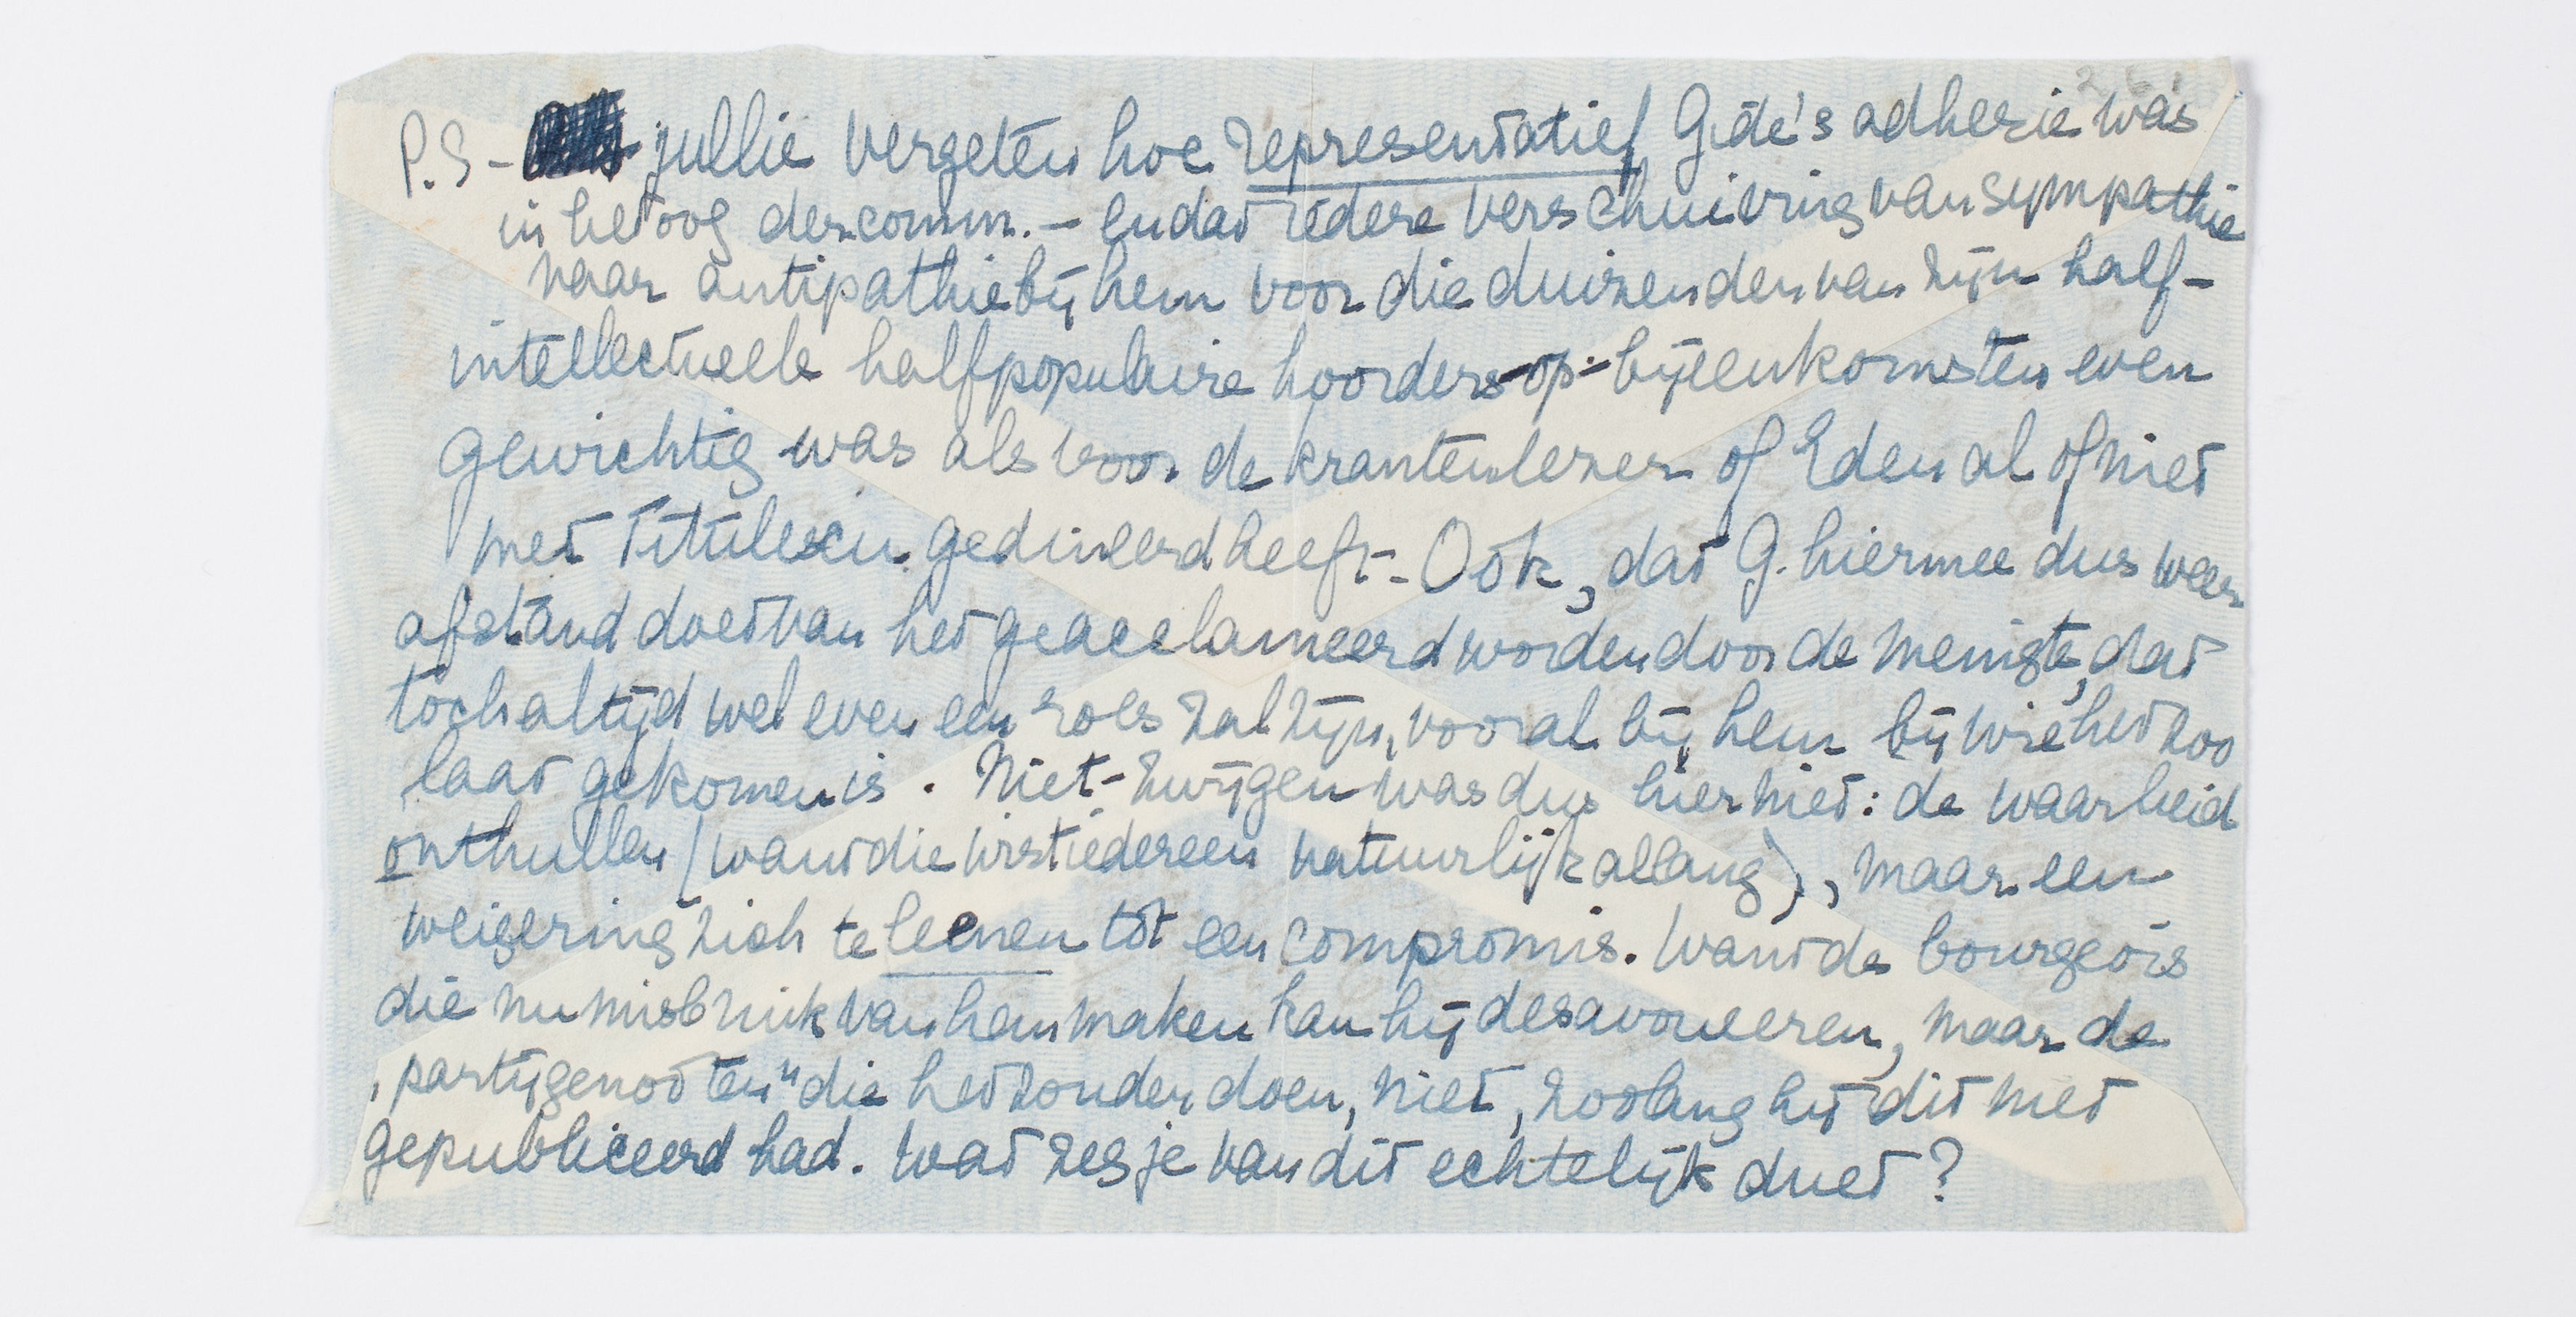 P.S- jullie vergeten hoe representatief Gide's adhesie was
in het oog der comm. – en dat iedere verschuivring van sympathie
naar antipathie bij hem voor die duizenden van zijn half-
intellectueele halfpopulaire hoorders-op-bijeenkomsten even
gewichtig was als voor de krantenlezer of Eden al of niet
met Titulescu gedineerd heeft – Ook, dat G. hiermee dus weer
afstand doet van het geacclameerd worden door de menigte, dat
toch altijd wel even een roes zal zijn, vooral bij hem bij wie het zoo
laat gekomen is. Niet-zwijgen was dus hier niet: de waarheid
onthullen (want die wist iedereen natuurlijk allang), maar een
weigering zich te leenen tot een compromis. Want de bourgeois
die nu misbruik van hem maken kan hij desavoueeren, maar de
„partijgenooten" die het zouden doen, niet, zoolang hij dit niet
gepubliceerd had. Wat zeg je van dit echtelijk duet?